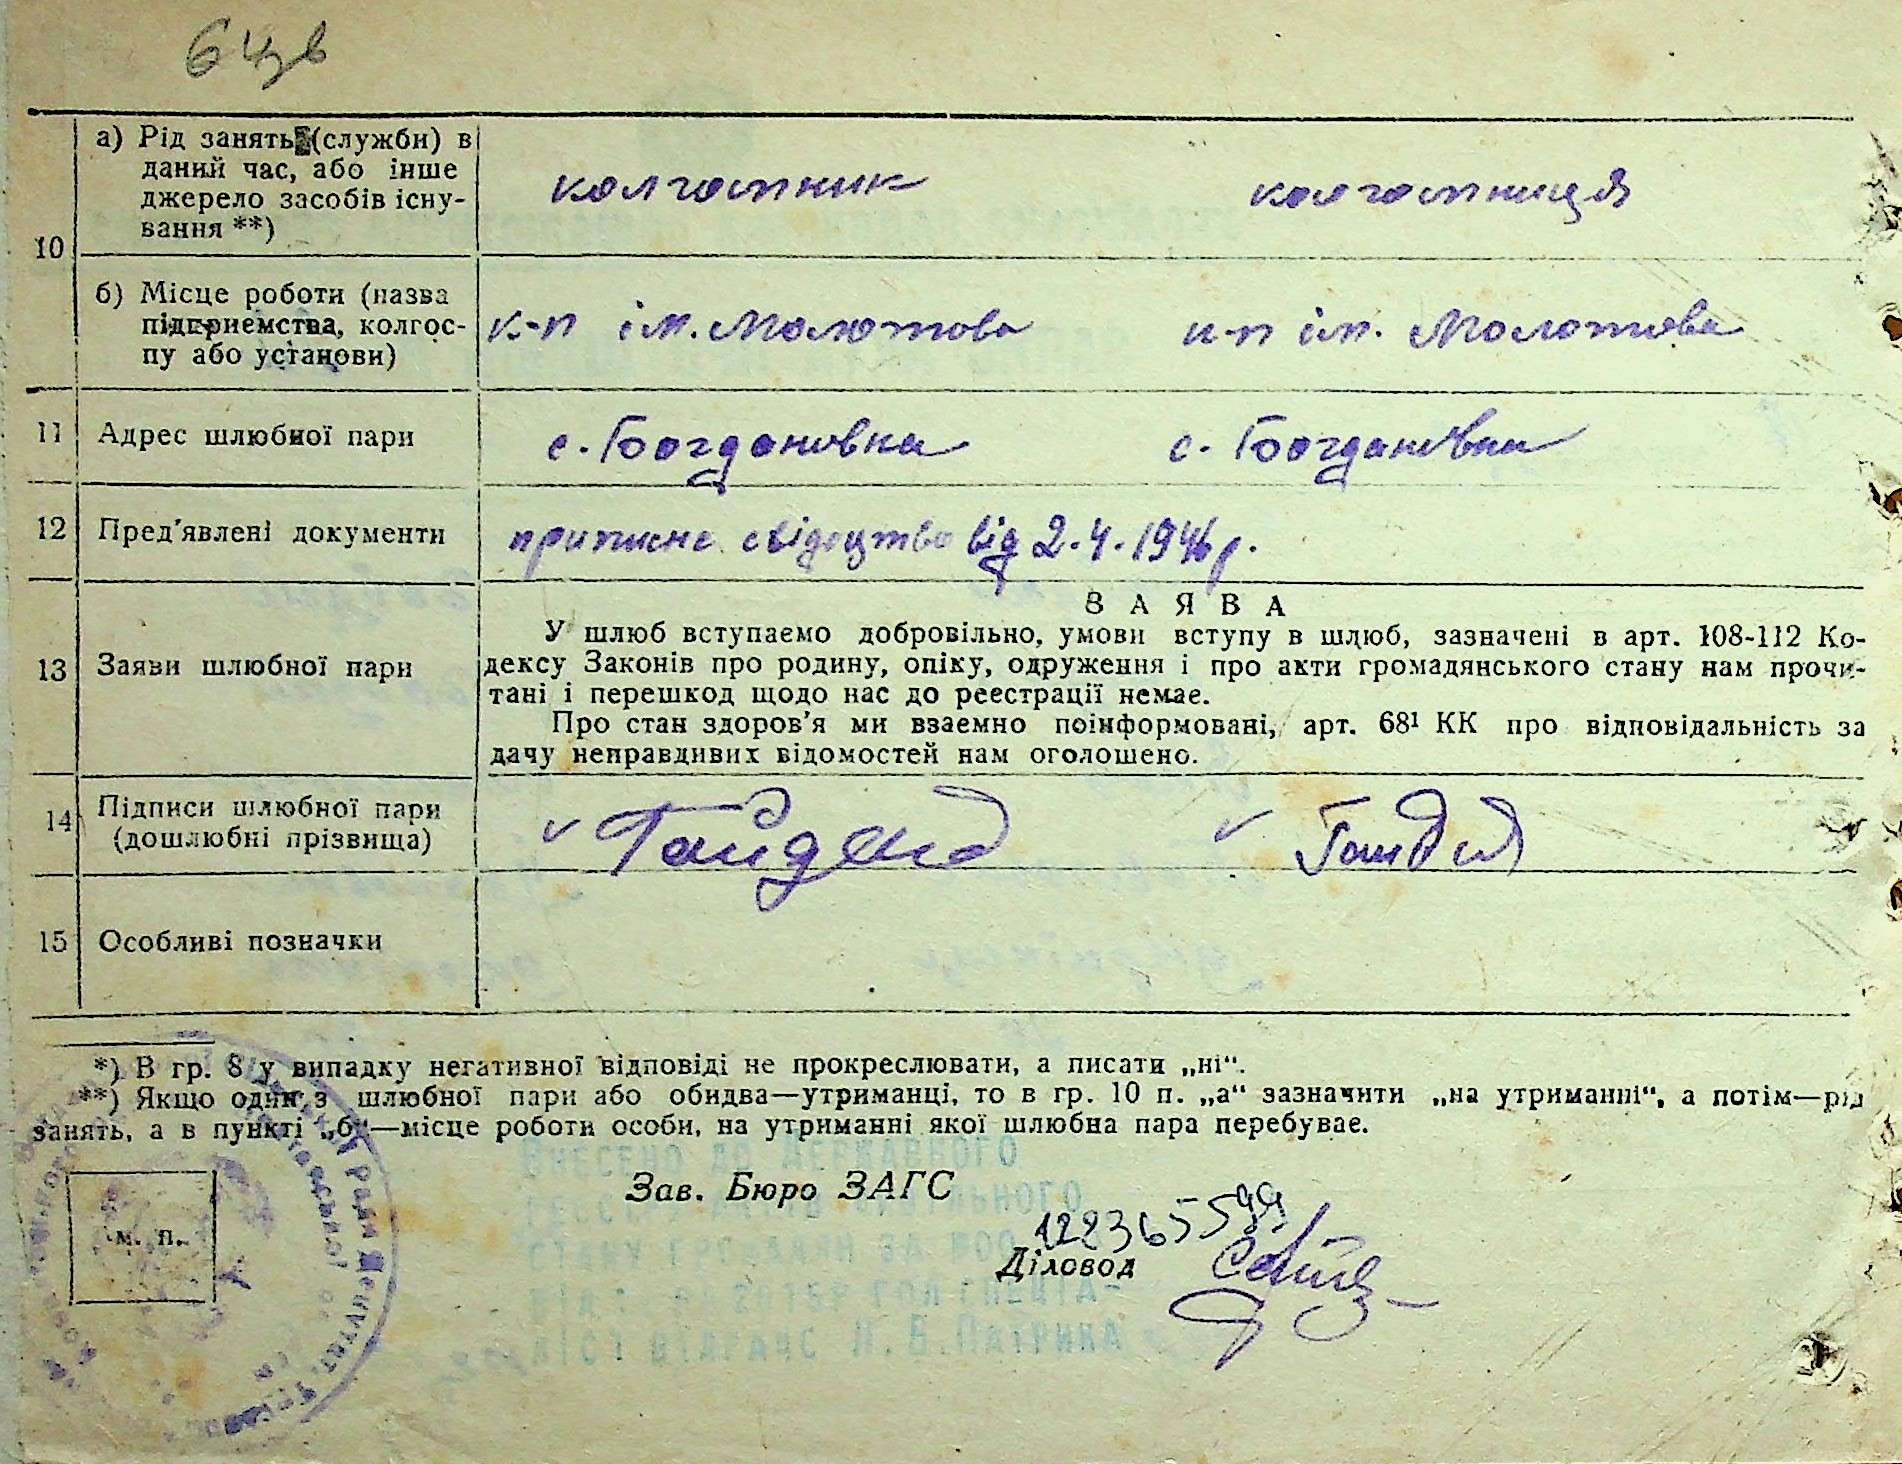 10
а) Рід занять (служби) в
даний час, або інше
джерело засобів існу-
вання **)
колгоспник колгоспниця
б) Місце роботи (назва
підприємства, колгос-
пу або установи)
к-п ім. Молотова к-п ім. Молотова
11 Адрес шлюбної пари с. Богдановка с. Богдановка
12 Пред'явлені документи приписне свідоцтво від 2.4.1946 р.
ЗАЯВА
13 Заяви шлюбної пари
У шлюб вступаємо добровільно, умови вступу в шлюб, зазначені в арт. 108-112 Ко-
дексу Законів про родину, опіку, одруження і про акти громадянського стану нам прочи-
тані і перешкод щодо нас до реєстрації немає.
Про стан здоров'я ми взаємно поінформовані, арт. 68¹ КК про відповідальність за
дачу неправдивих відомостей нам оголошено.
14 Підписи шлюбної пари
(дошлюбні прізвища)
15 Особливі позначки
*) В гр. 8 у випадку негативної відповіді не прокреслювати, а писати „ні“.
**) Якщо один з шлюбної пари або обидва—утриманці, то в гр. 10 п. „а“ зазначити „на утриманні“, а потім—рід
занять, а в пункті „б“—місце роботи особи, на утриманні якої шлюбна пара перебуває.
ВНЕСЕНО ДО ДЕРЖАВНОГО
Зав. Бюро ЗАГС
1223655599
Діловод
м. п.